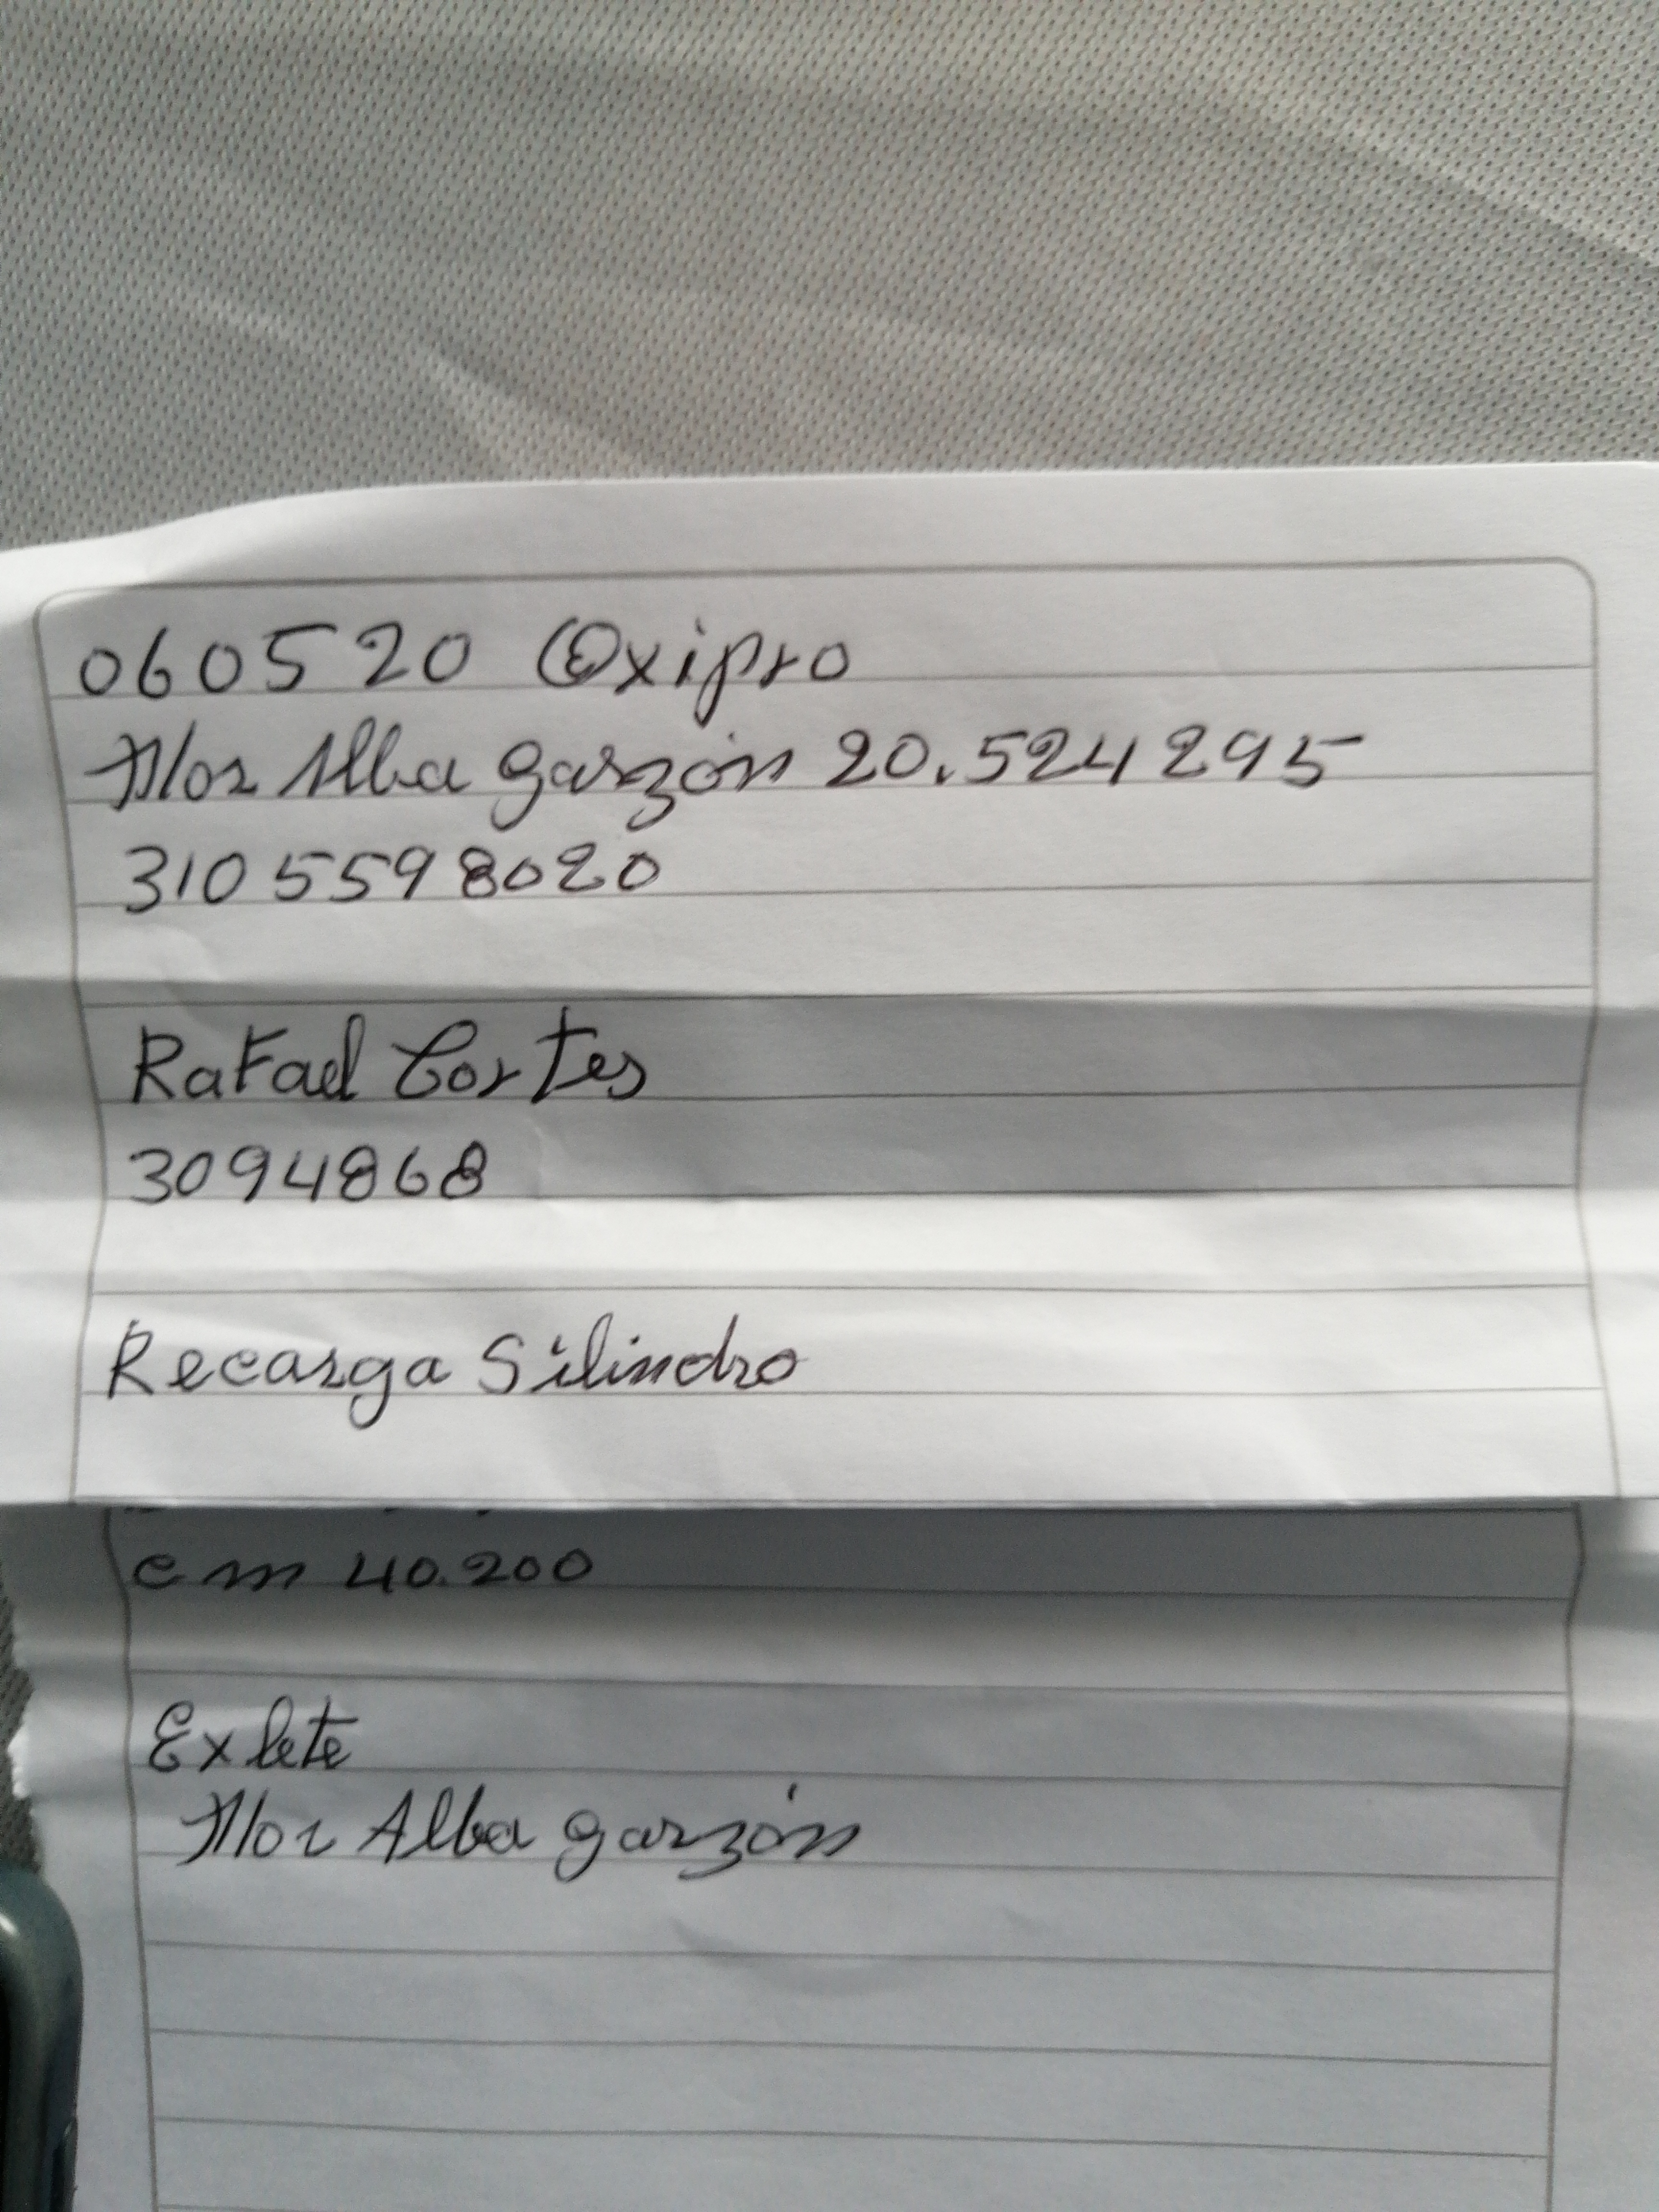 060520 Oxipro
Flor Alba garzón 20.524295
310 5598020
Rafael Cortes
3094868
Recarga Silindro
en 40.200
Exlete
Flor Alba garzón